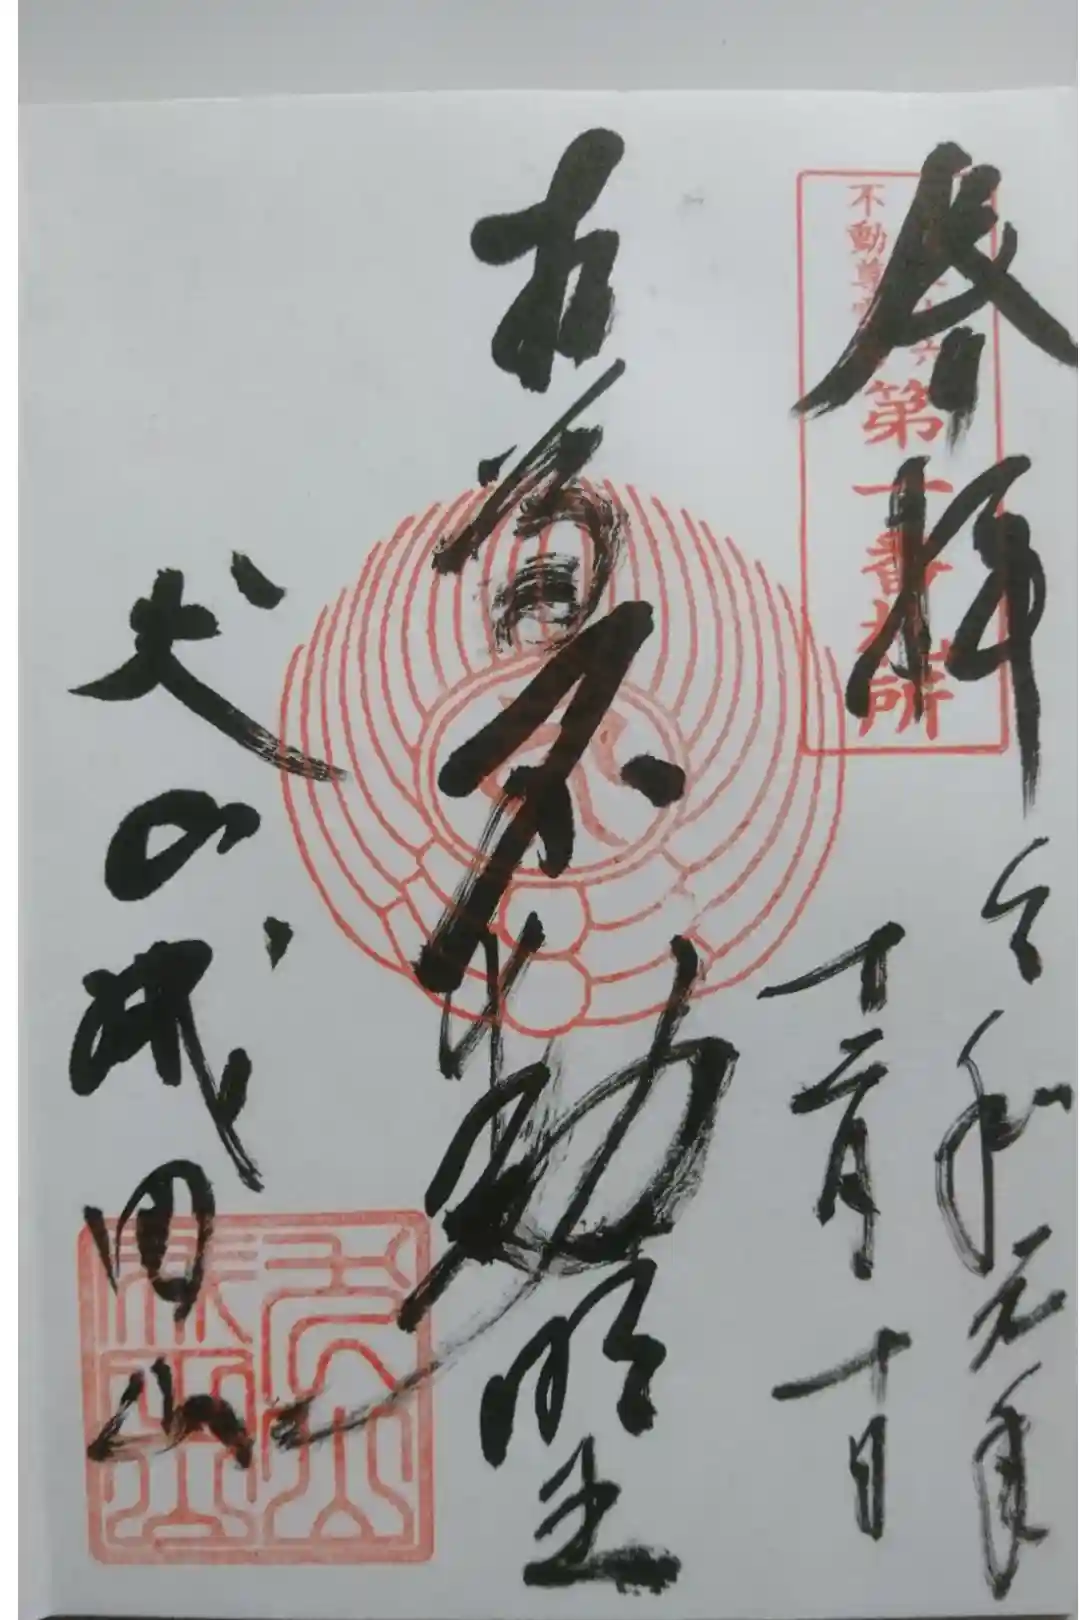 奉拝
不動尊霊
六
第一番札所
令和元年
十二月十日
本尊不動明王
犬山成田山